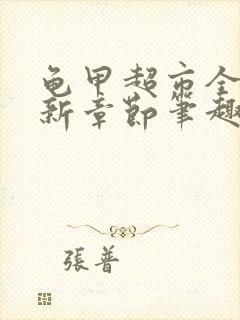 龟甲超市全
新章節筆趣
張普